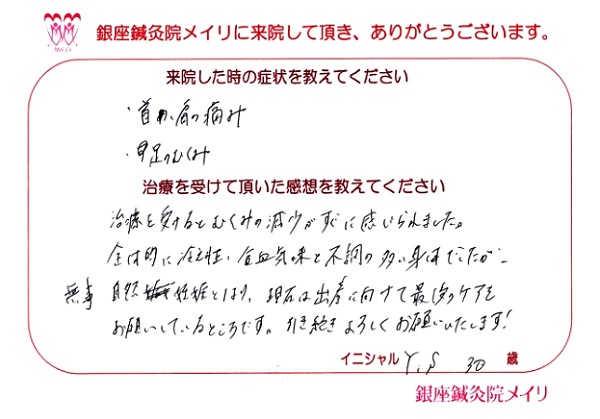 Mei.Li
銀座鍼灸院メイリに来院して頂き、ありがとうございます。
来院した時の症状を教えてください
・首や、肩の痛み
・手足のむくみ
治療を受けて頂いた感想を教えてください
治療を受けるとむくみの減少がすぐに感じられました。
全体的に冷え性、貧血気味と不調の多い身体でしたが、
無事 自然妊娠となり、現在は出産に向けて最後のケアを
お願いしているところです。引き続きよろしくお願いいたします!
イニシャル Y.S 30 歳
銀座鍼灸院メイリ